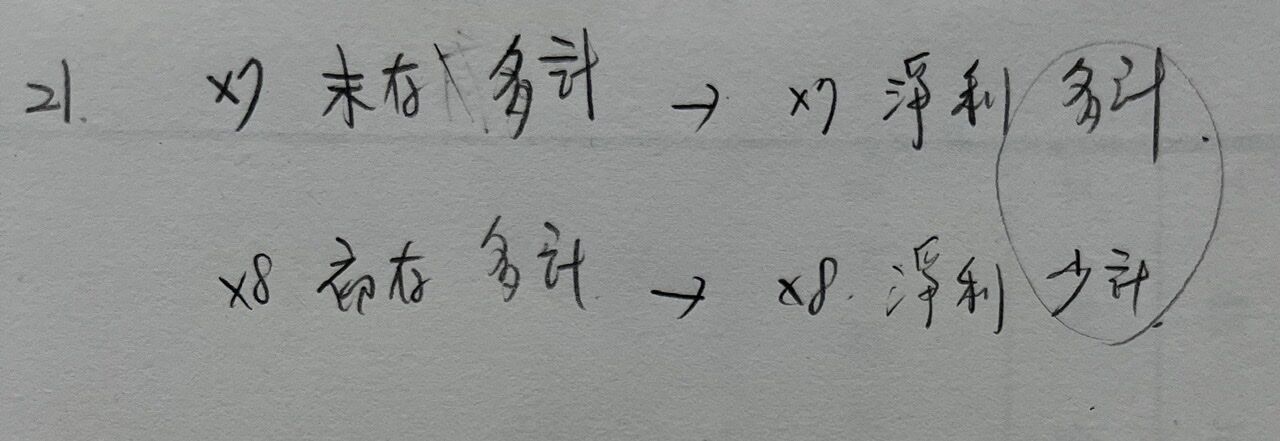 21. X7 末存 多計 → X7 淨利 多計.
X8 初存 多計 → X8. 淨利 少計.